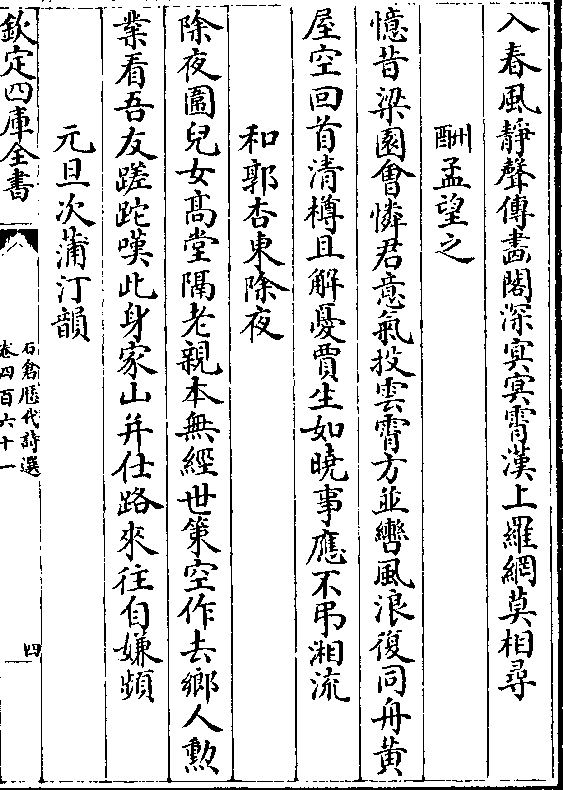 入春風靜聲傳畵閣深㝠㝠霄漢上羅網莫相尋
酬孟望之
憶昔梁園會憐君意氣投雲霄方並轡風浪復同舟黄
屋空回首清樽且解憂賈生如曉事應不弔湘流
和郭杏東除夜
除夜圍兒女髙堂隔老親本無經世策空作去鄉人勲
業看吾友蹉跎嘆此身家山并仕路來往自嫌頻
元旦次蒲汀韻
欽定四庫全書
石倉歴代詩選
卷四百六十一
四